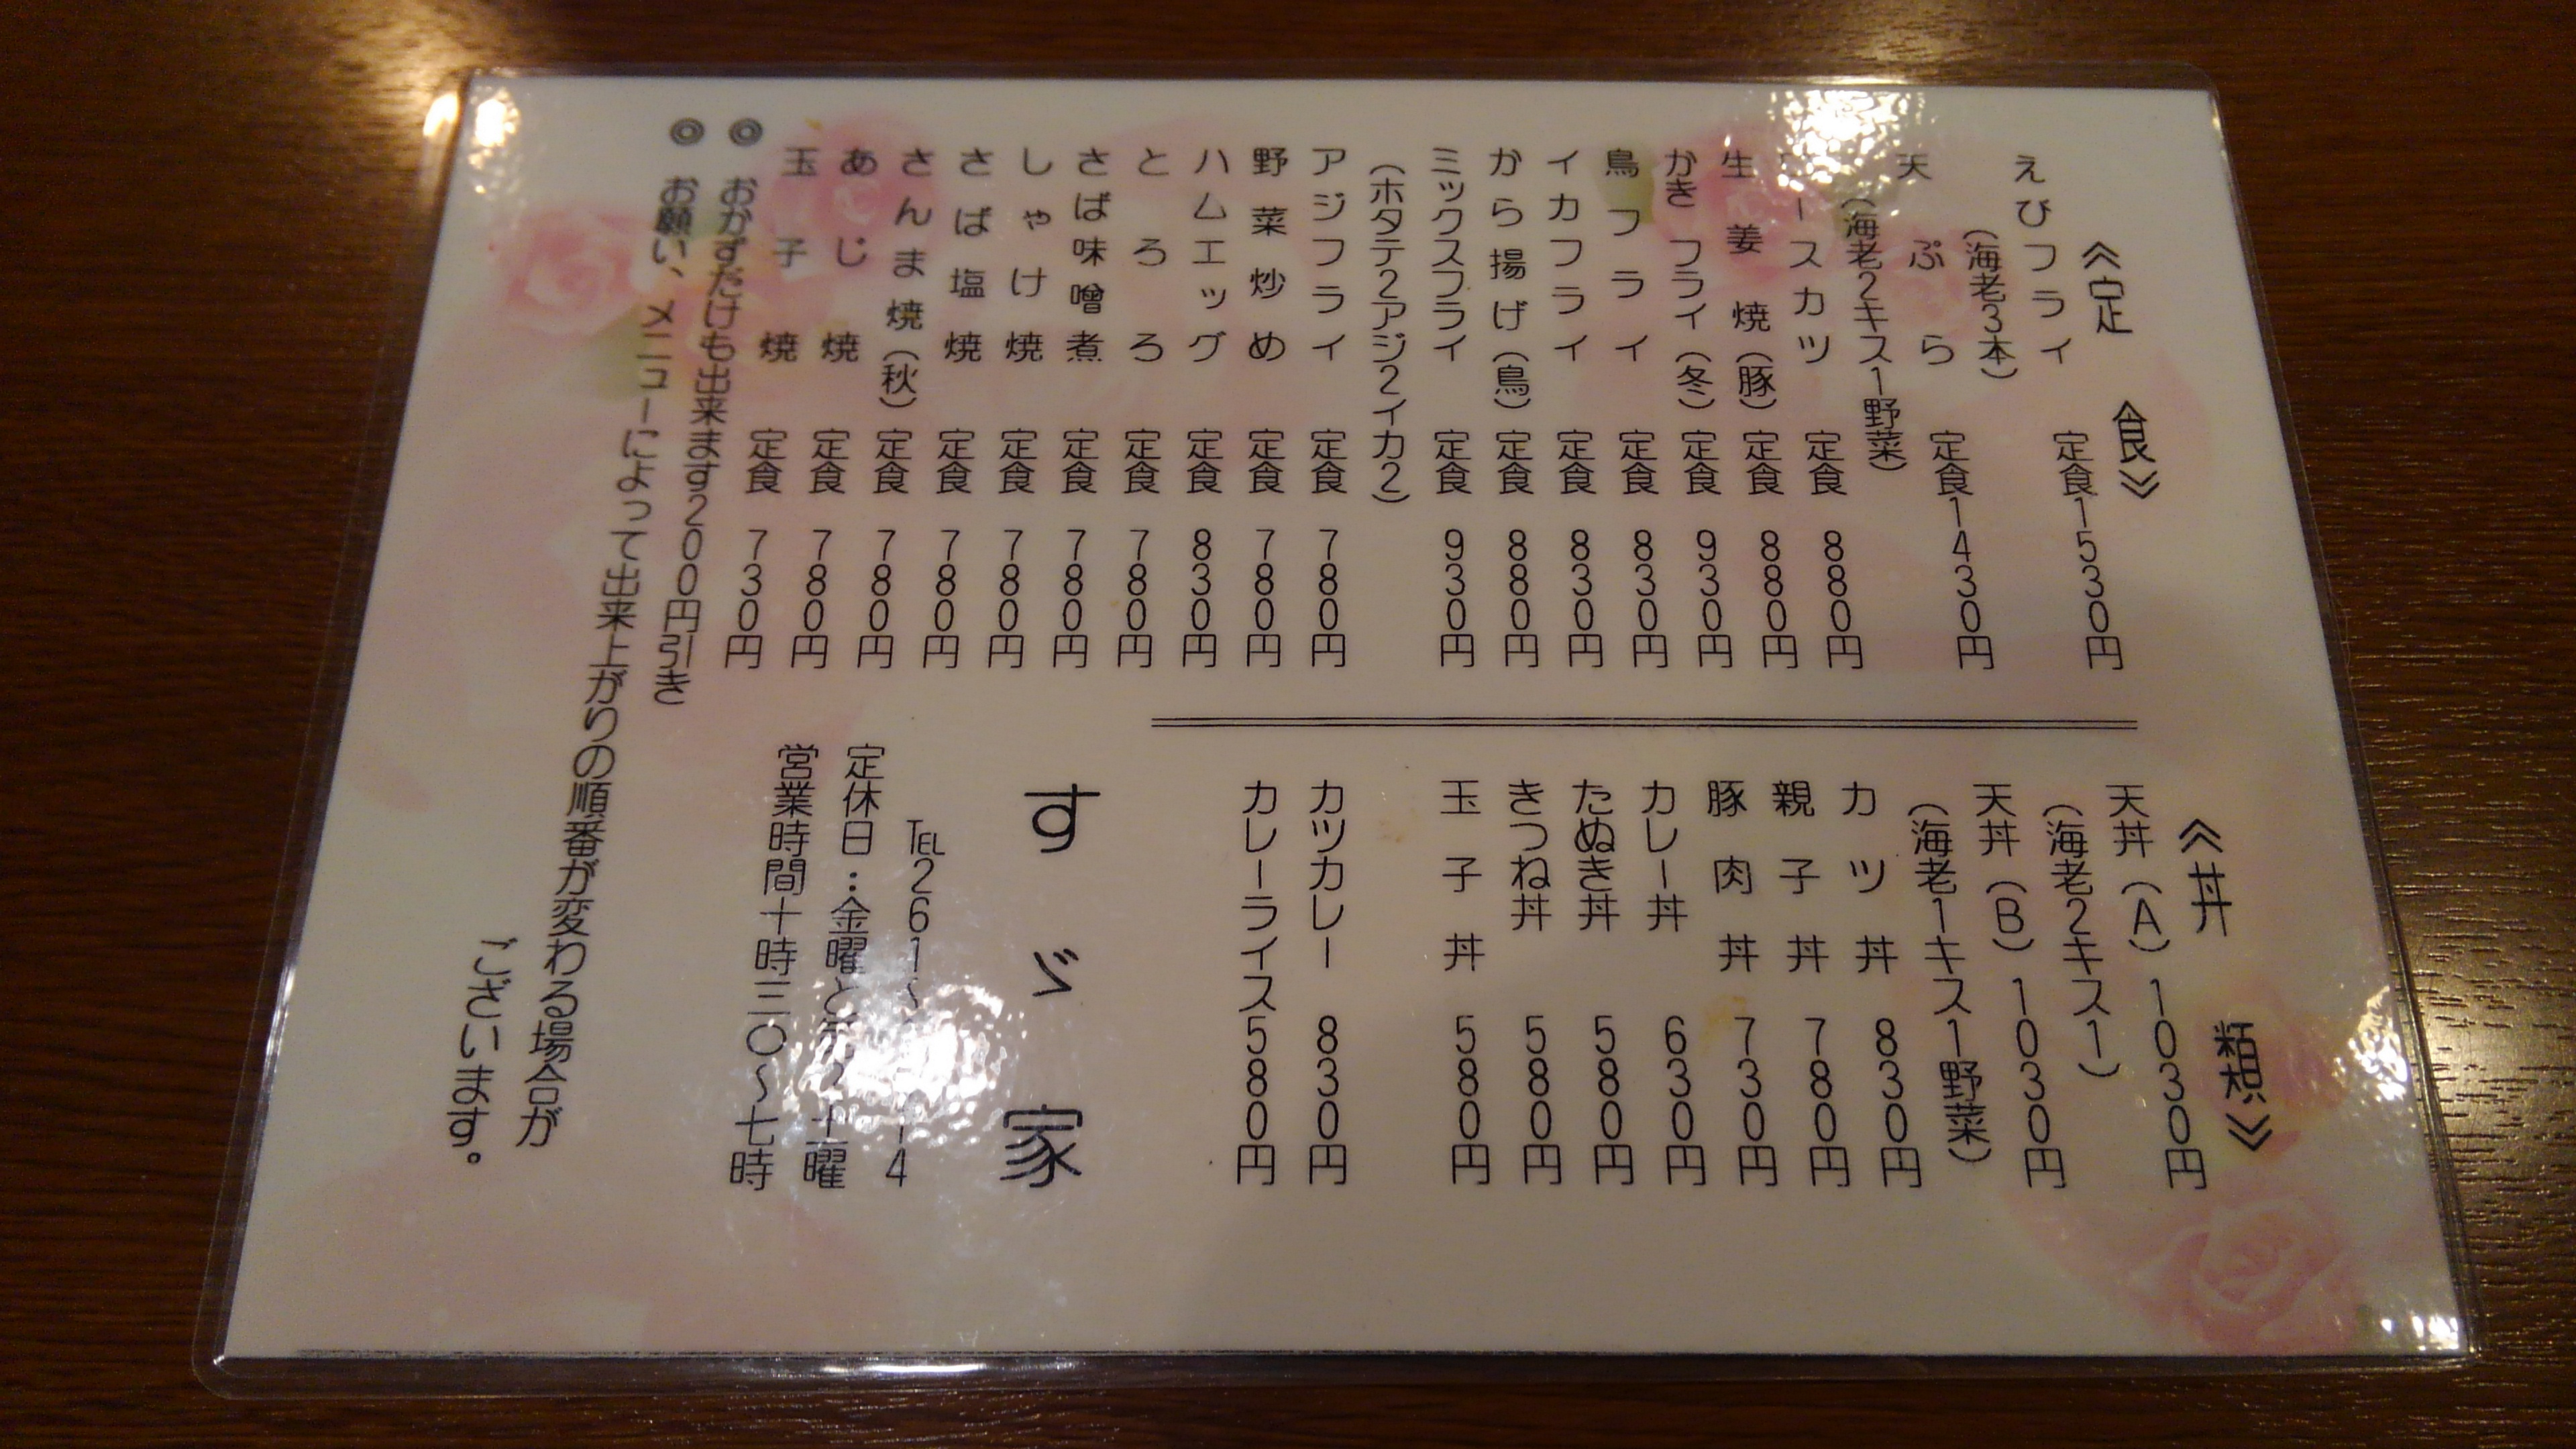 ≪定　食≫
えびフライ 定食1530円
(海老3本)
天ぷら 定食1430円
(海老2キス1野菜)
ースカツ 定食 880円
生姜焼(豚) 定食 880円
かきフライ(冬) 定食 930円
鳥フライ 定食 830円
イカフライ 定食 830円
から揚げ(鳥) 定食 880円
ミックスフライ 定食 930円
(ホタテ2アジ2イカ2)
アジフライ 定食 780円
野菜炒め 定食 780円
ハムエッグ 定食 830円
とろろ 定食 780円
さば味噌煮 定食 780円
しゃけ焼 定食 780円
さば塩焼 定食 780円
さんま焼(秋) 定食 780円
あじ焼 定食 780円
玉子焼 定食 730円
◎ おかずだけも出来ます200円引き
◎ お願い、メニューによって出来上がりの順番が変わる場合が
ございます。
≪丼　類≫
天丼(A) 1030円
(海老2キス1)
天丼(B) 1030円
(海老1キス1野菜)
カツ丼 830円
親子丼 780円
豚肉丼 730円
カレー丼 630円
たぬき丼 580円
きつね丼 580円
玉子丼 580円
カツカレー 830円
カレーライス 580円
すゞ家
TEL261
定休日：金曜と 土曜
営業時間十時三〇～七時